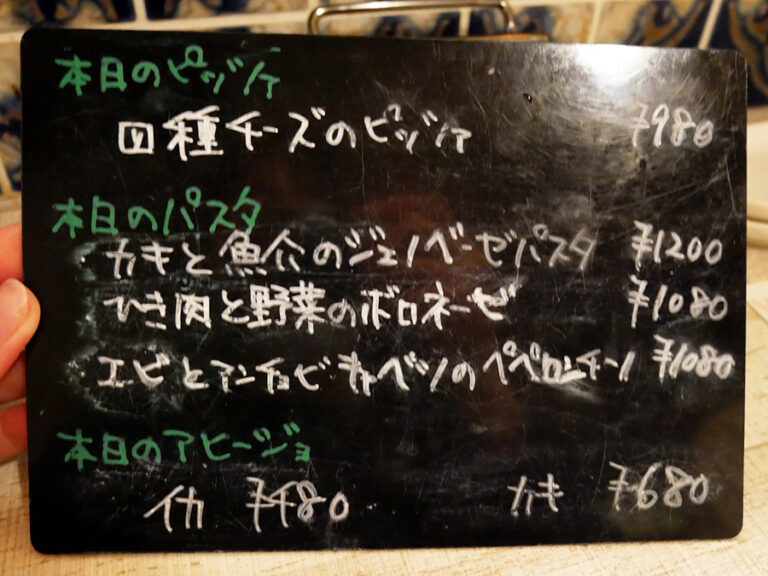 本日のピッツァ
四種チーズのピッツァ ¥980
本日のパスタ
カキと魚介のジェノベーゼパスタ ¥1200
ひき肉と野菜のボロネーゼ ¥1080
エビとアンチョビキャベツのペペロンチーノ ¥1080
本日のアヒージョ
イカ ¥480 カキ ¥680